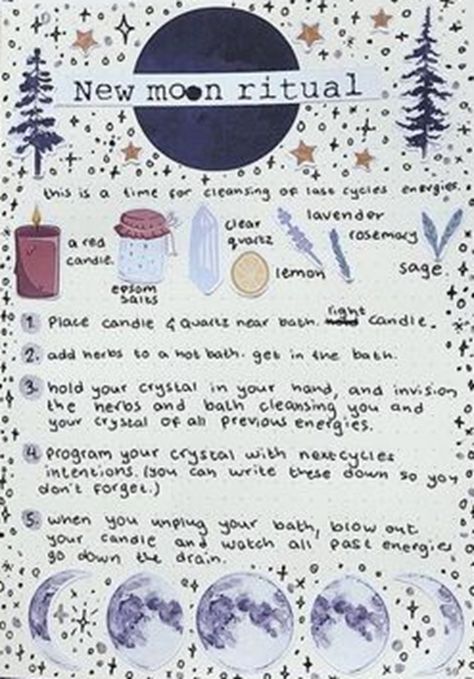 New moon ritual
this is a time for cleansing of last cycles energies.
a red candle.
epsom salts
clear quartz
lemon
lavender
rosemary
sage.
1. Place candle & quartz near bath. right candle.
2. add herbs to a hot bath. get in the bath.
3. hold your crystal in your hand, and invision
the herbs and bath cleansing you and
your crystal of all previous energies.
4. program your crystal with next cycles
intentions. (you can write these down so you
don't forget.)
5. when you unplug your bath, blow out
your candle and watch all past energies
go down the drain.